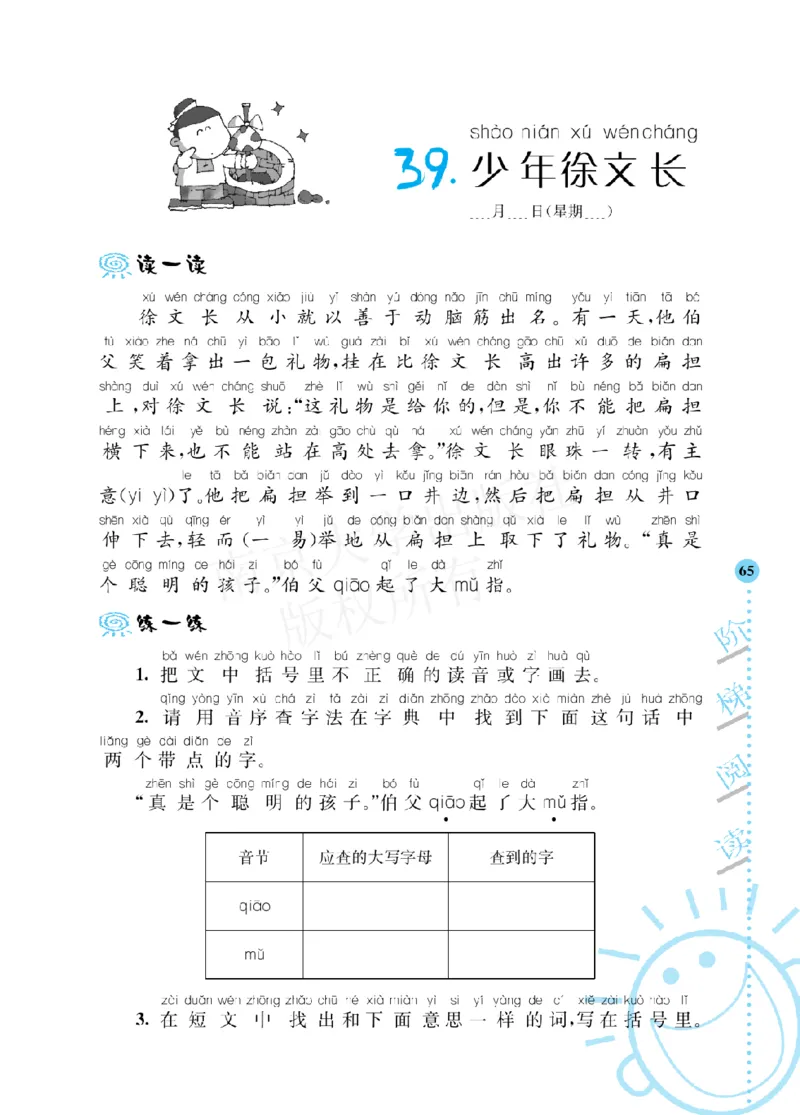 shào nián xú wén cháng
39. 少年徐文长
月 日(星期 )
读一读
xú wén cháng cóng xiǎo jiù yǐ shàn yú dòng nǎo jīn chū míng yǒu yì tiān tā bó
徐文长从小就以善于动脑筋出名。有一天,他伯
fù xiào zhe ná chū yì bāo lǐ wù guà zài bǐ xú wén cháng gāo chū xǔ duō de biǎn dan
父笑着拿出一包礼物,挂在比徐文长高出许多的扁担
shàng duì xú wén cháng shuō zhè lǐ wù shì gěi nǐ de dàn shì nǐ bù néng bǎ biǎn dan
上,对徐文长说:“这礼物是给你的,但是,你不能把扁担
héng xià lái yě bù néng zhàn zài gāo chù qù ná xú wén cháng yǎn zhū yì zhuàn yǒu zhǔ
横下来,也不能站在高处去拿。”徐文长眼珠一转,有主
le tā bǎ biǎn dan jǔ dào yì kǒu jǐng biān rán hòu bǎ biǎn dan cóng jǐng kǒu
意(yì yì)了。他把扁担举到一口井边,然后把扁担从井口
shēn xià qù qīng ér yì yì jǔ de cóng biǎn dan shàng qǔ xià le lǐ wù zhēn shì
伸下去,轻而(一 易)举地从扁担上取下了礼物。“真是
gè cōng míng de hái zi bó fù qǐ le dà zhǐ
个聪明的孩子。”伯父qiāo起了大mǔ指。
练一练
bǎ wén zhōng kuò hào lǐ bú zhèng què de dú yīn huò zì huà qù
1. 把文中括号里不正确的读音或字画去。
qǐng yòng yīn xù chá zì fǎ zài zì diǎn zhōng zhǎo dào xià miàn zhè jù huà zhōng
2. 请用音序查字法在字典中找到下面这句话中
liǎng gè dài diǎn de zì
两个带点的字。
zhēn shì gè cōng míng de hái zi bó fù qǐ le dà zhǐ
“真是个聪明的孩子。”伯父qiāo起了大mǔ指。
音节 应查的大写字母 查到的字
qiāo
mǔ
zài duǎn wén zhōng zhǎo chū hé xià miàn yì si yí yàng de cí xiě zài kuò hào lǐ
3. 在短文中找出和下面意思一样的词,写在括号里。
65
阶梯阅读
南京大学出版社
版权所有